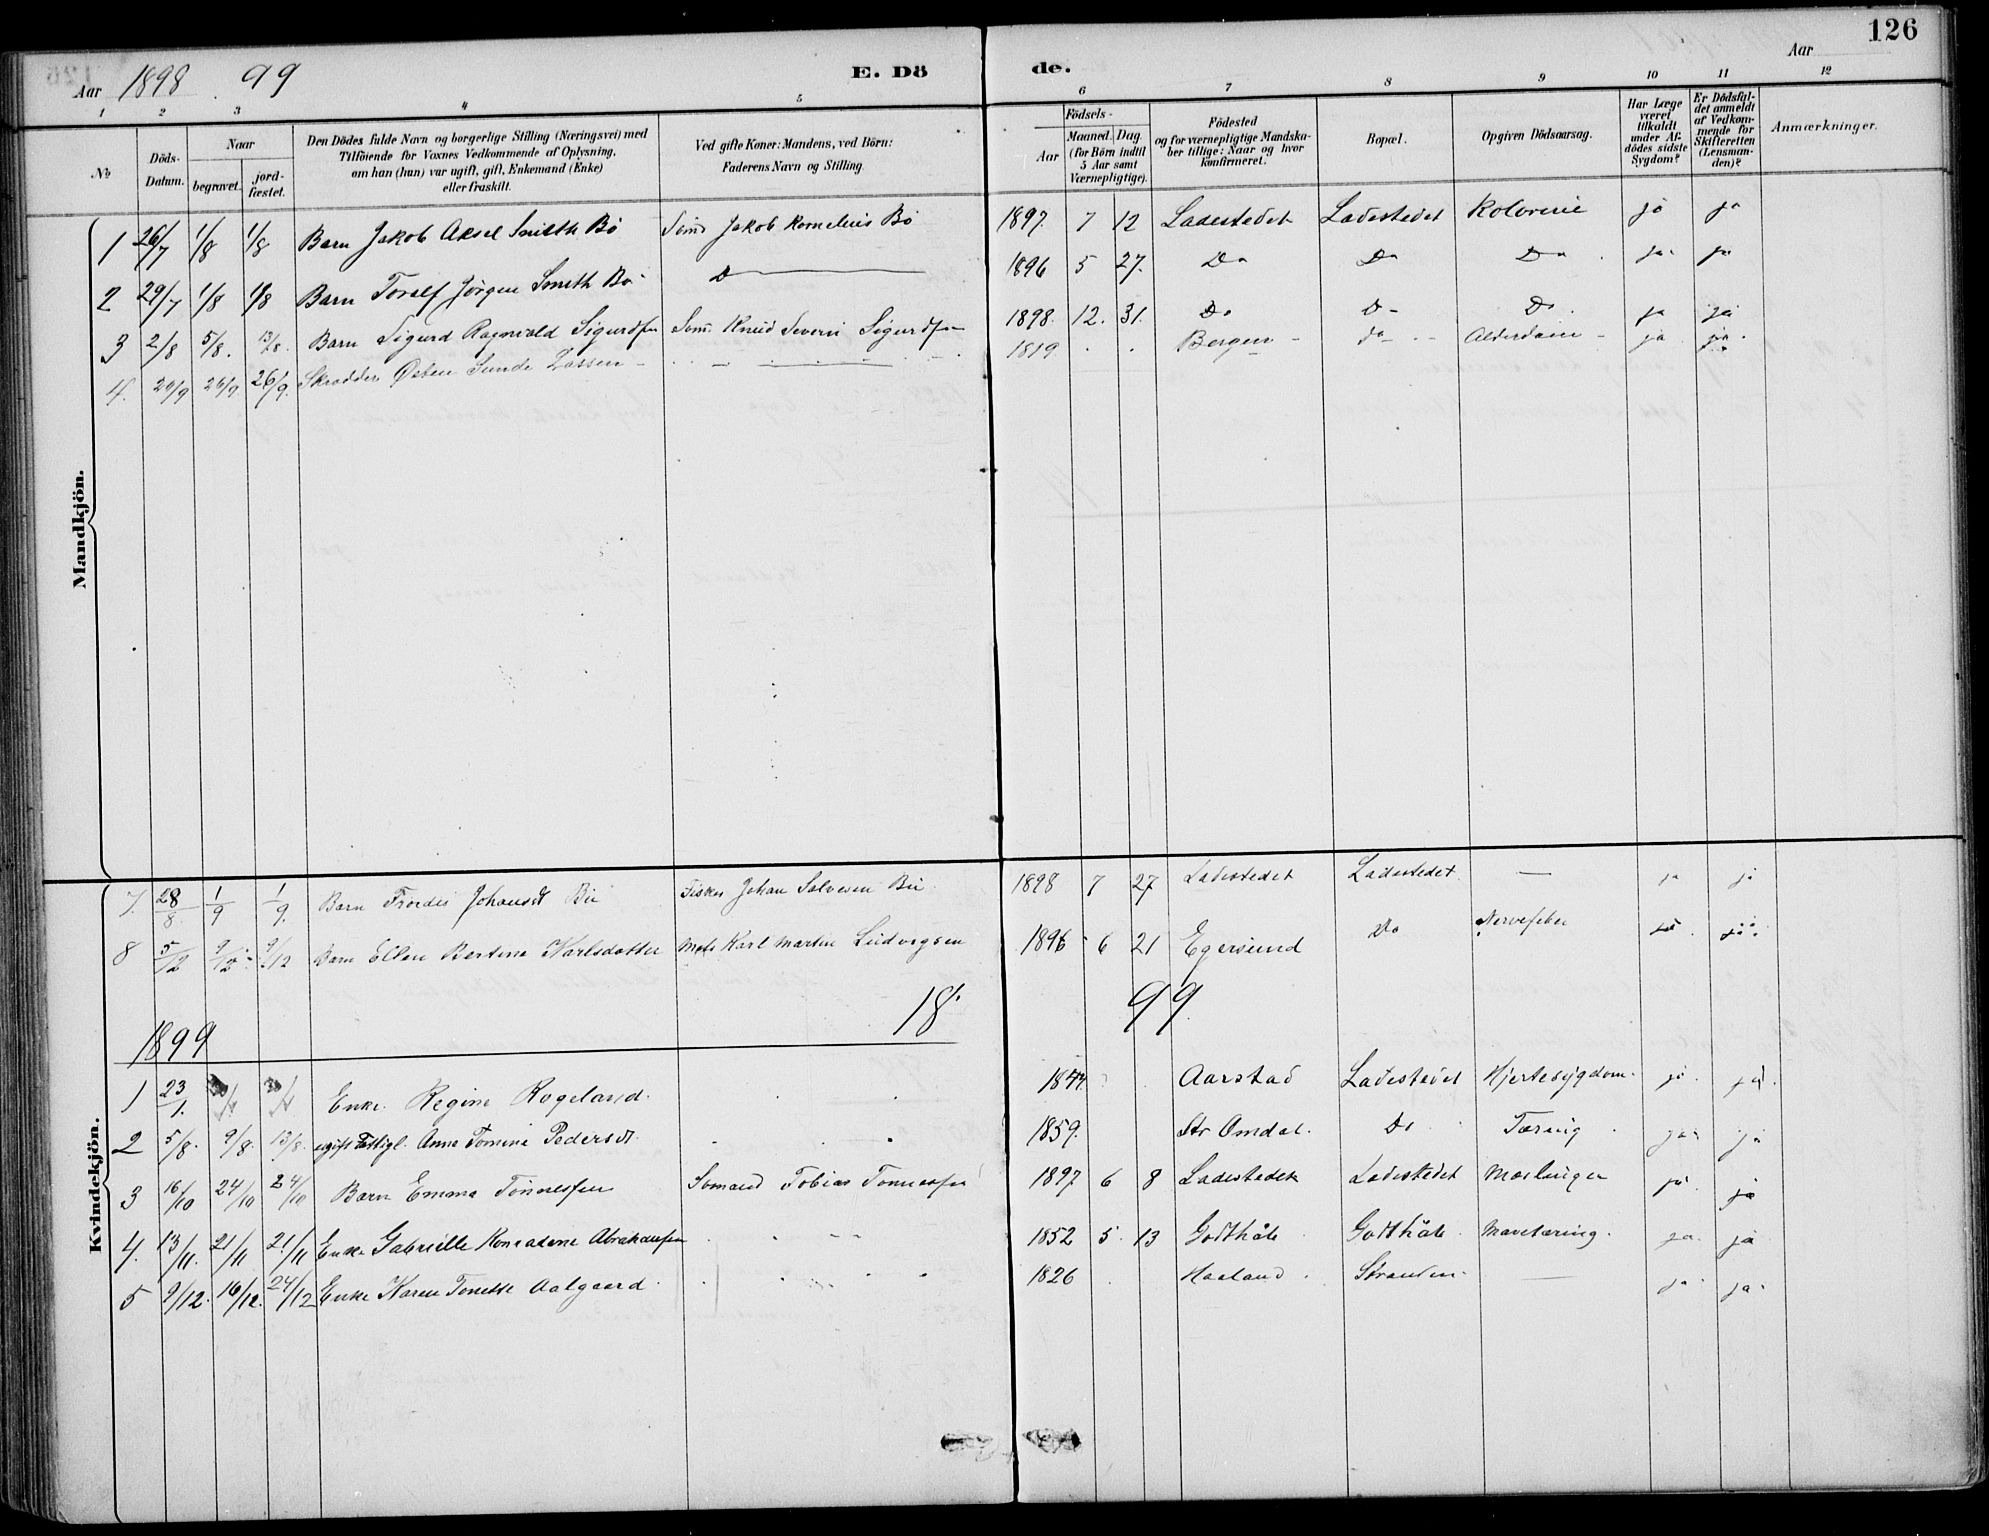 126
Aar 1898 99
E. Dö
de.
Aar
1 2 3 4 5 6 7 8 9 10 11 12
№
Döds-Datum.
Naar
begravet.
jord-fæstet.
Den Dödes fulde Navn og borgerlige Stilling (Næringsvei) med
Tilföiende for Voxnes Vedkommende af Oplysning,
om han (hun) var ugift, gift, Enkemand (Enke)
eller fraskilt.
Ved gifte Koner: Mandens, ved Börn:
Faderens Navn og Stilling.
Födsels-
Aar
Maaned. Dag.
(for Börn indtil
5 Aar samt
Værnepligtige).
Födested
og for værnepligtige Mandska-
ber tillige: Naar og hvor
konfirmeret.
Bopæl.
Opgiven Dödsaarsag.
Har Læge
været
tilkaldt
under Af-
dödes sidste
Sygdom?
Er Dödsfal-
det anmeldt
af Vedkom-
mende for
Skifteretten
(Lensman-
den)?
Anmærkninger.
Mandkjön.
1 26/7 1/8 1/8 Barn Jakob Aksel Smith Bö Sømd Jakob Kornelius Bö 1897. 7 12 Ladestedet Ladestedet Kolerine ja ja
2 29/7 1/8 1/8 Barn Toralf Jörgen Smith Bö D 1896 5 27. Do Do Do ja ja
3 2/8 5/8. 13/8. Barn Sigurd Ragnvald Sigurdsen Sømd Knud Severin Sigurdsen 1898. 12. 31. Do Do Do. ja ja
4. 20/9 26/9 26/9. Skrædder Østen Sunde Lassen 1819 Bergen do Alderdom ja ja
Kvindekjön.
7. 28/8. 1/9 1/9. Barn Frordis Johansdt Bie Fisker Johan Salvesen Bie 1898 7 27 Ladestedet Ladestedet. — ja ja
8 5/12 9/12 9/12 Barn Ellen Bertine Karlsdatter Karl Martin Ludvigsen 1896 6 21 Egersund Do Nervefeber ja ja
1899 18 99
1 23/1. Enke Regine Rogeland. 1844. Aarstad Ladestedet Hjertesygdom. ja ja.
2 5/8. 9/8. 13/8. ugift Fattigl. Anne Tomine Pedersdt. 1859. Str Omdal. Do Tæring ja ja
3 16/10 24/10 24/10 Barn Emma Tönnesen Sömand Tobias Tonnessen 1897 6 8 Ladestedet Ladestedet Mæslinger ja. ja
4. 13/11. 21/11 21/11 Enke Gabrielle Konradine Abrahamsen 1852 5 13 Godthåb Godthåb Mavetæring. ja ja
5 9/12. 16/12. 24/12 Enke Karen Tonette Aalgaard 1826 Haaland Stranden — ja ja.